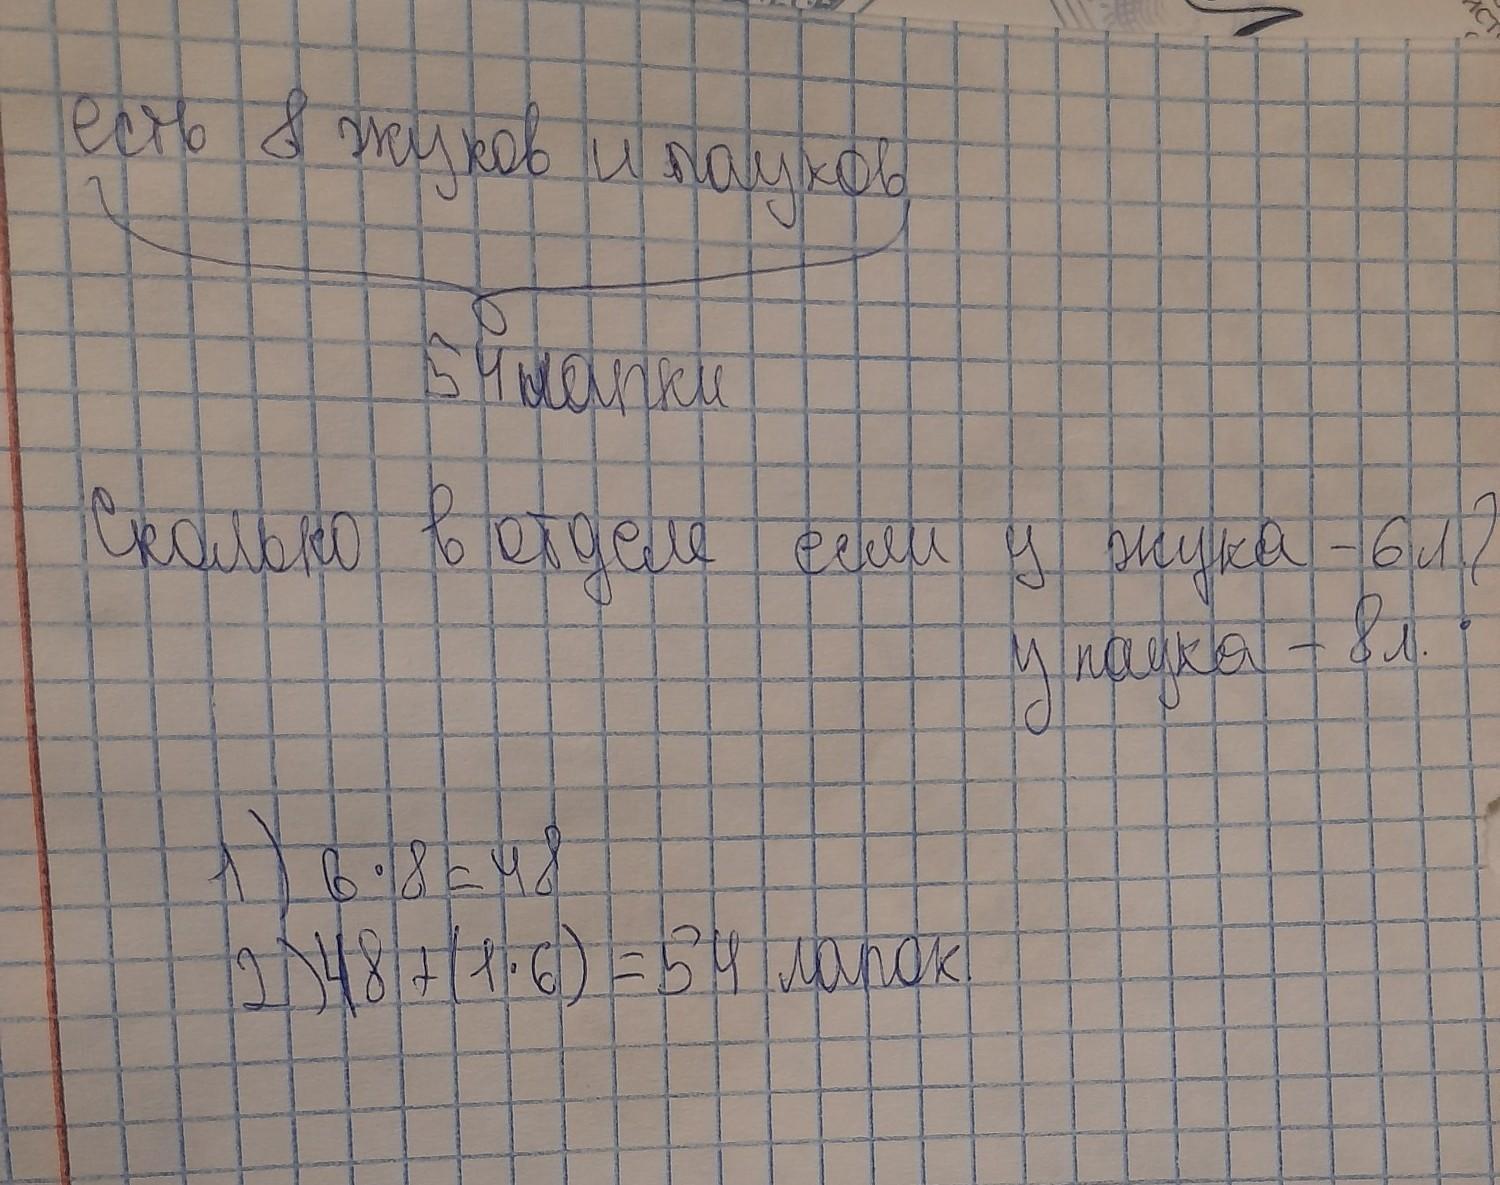 есть 8 жуков и пауков
54 лапки
Сколько в отделе если у жука - 6 л?
у паука - 8 л.
1) 6·8=48
2) 48+(1·6)=54 лапок